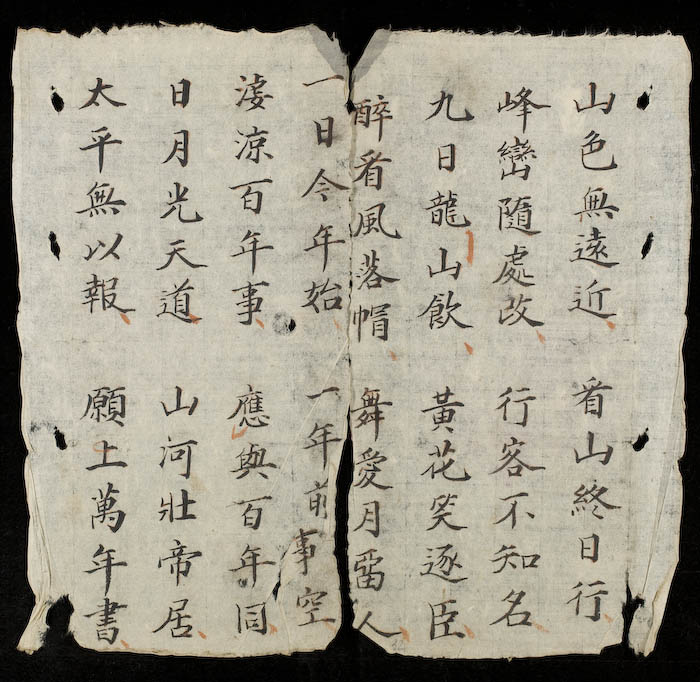 山色無遠近 看山終日行
峰巒隨處改 行客不知名
九日龍山飲 黃花笑逐臣
醉看風落帽 舞愛月畱人
一日今年始 一年前事空
淒涼百年事 應與百年同
日月光天道 山河壯帝居
太平無以報 願上萬年書